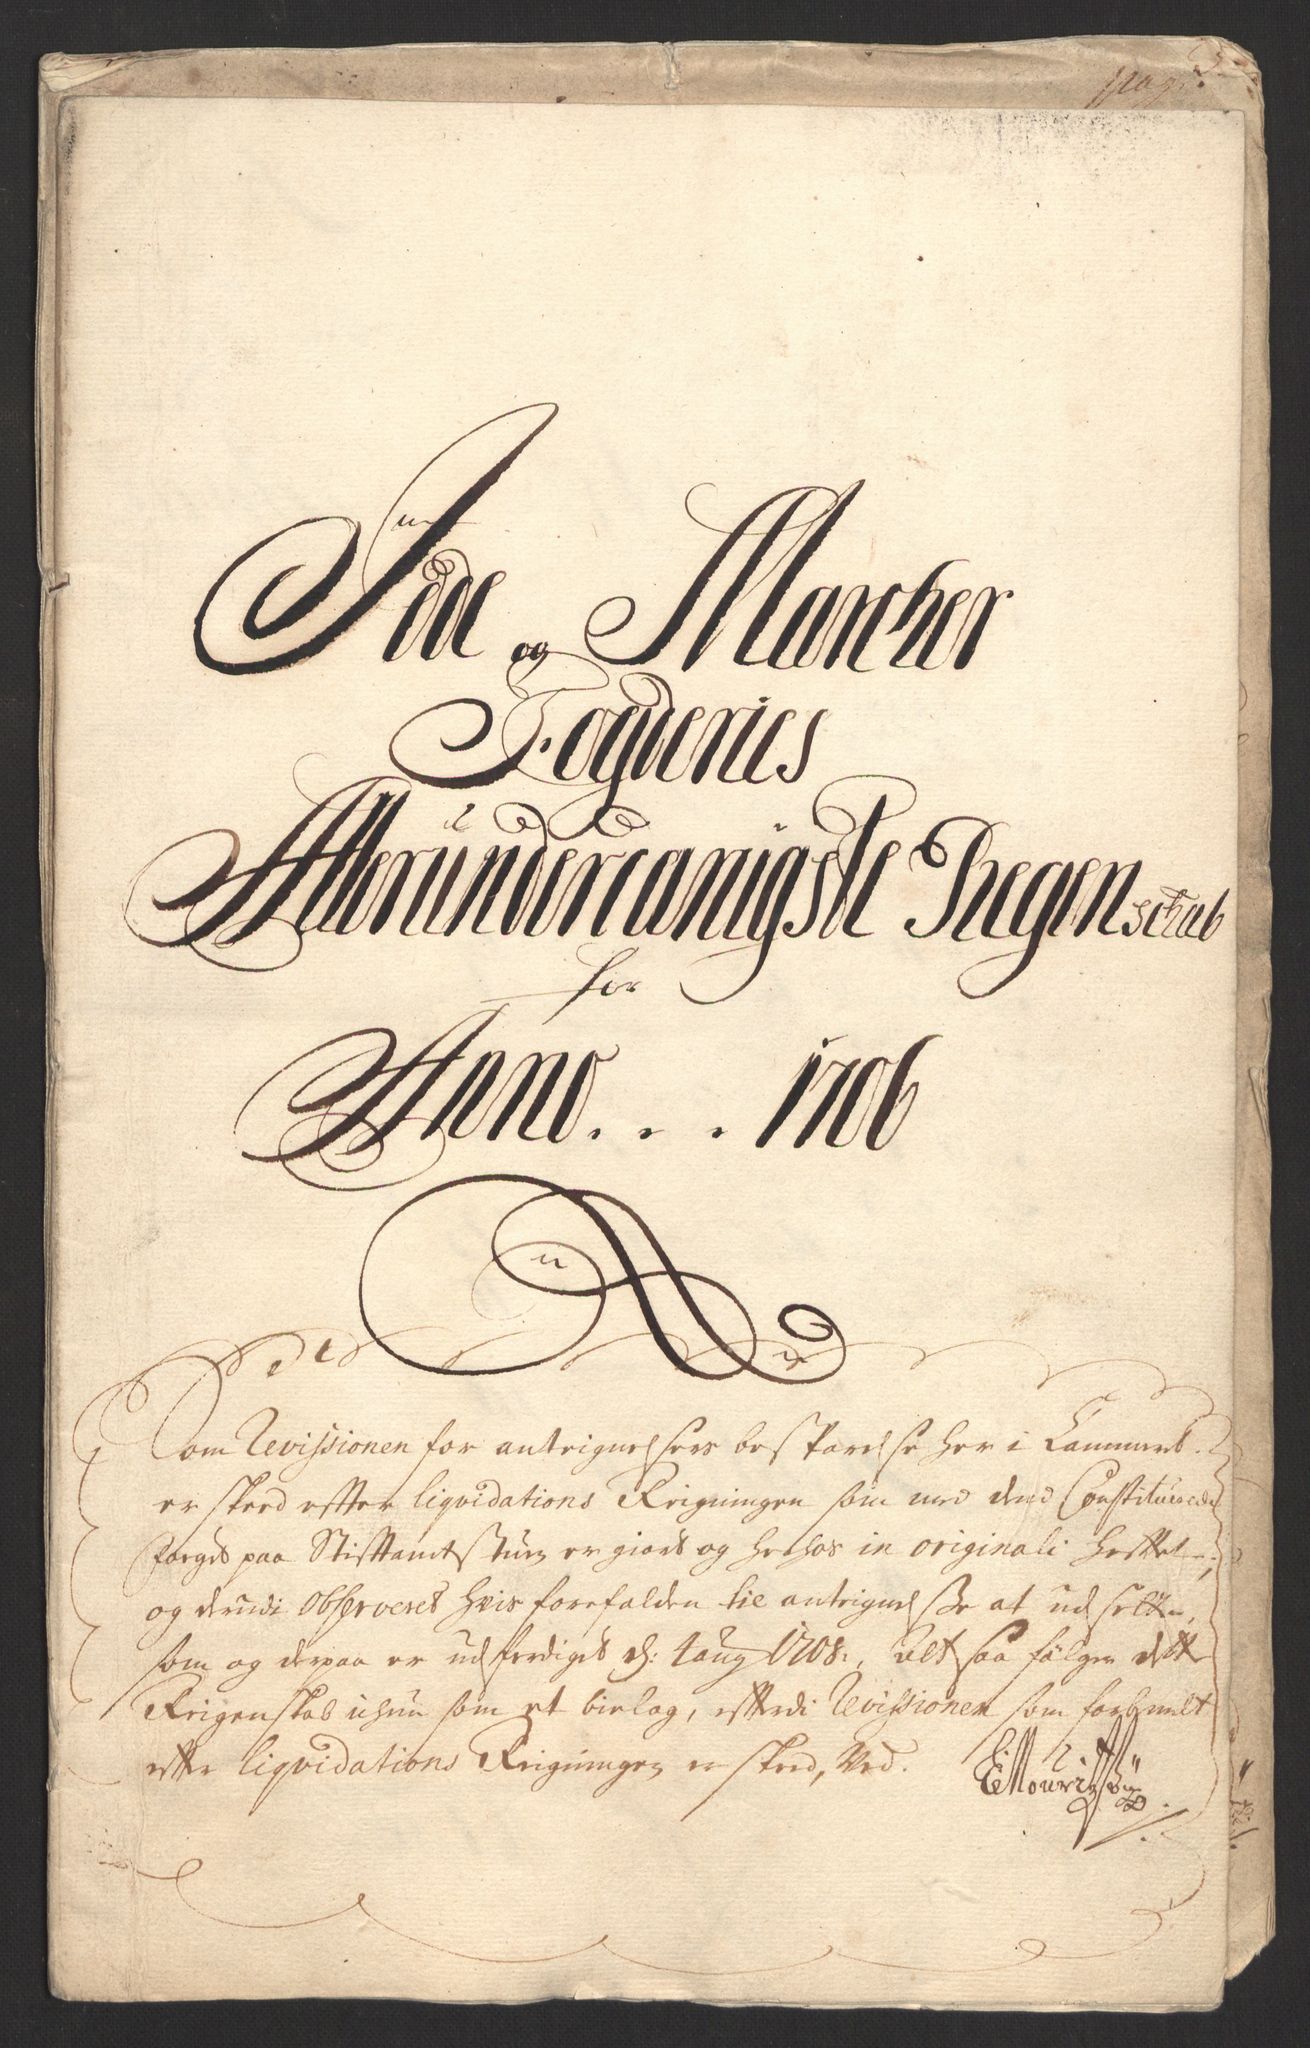 pag: 3.
Idde og Marcher
Fogderies
Allerunderdanigste Regenschab
for
Anno . . . 1706
Som Revissionen for antegnelsers besparelse her i Cammeret
er skeed efter liqvidations Reigningen som med dend Constituerede
Foeget paa Stiftamtstuen er giort og herhos in originali heftet,
og derudi observeret hvis forefalden til antegnelse at udsette,
som og derpaa er udferdiget d: 4 aug 1708, Alt saa følger dette
Reigenskab ichun som et bielag, efterdi Revissionen som forbemelt
efter liqvidations Reigningen er skeed, Ved.